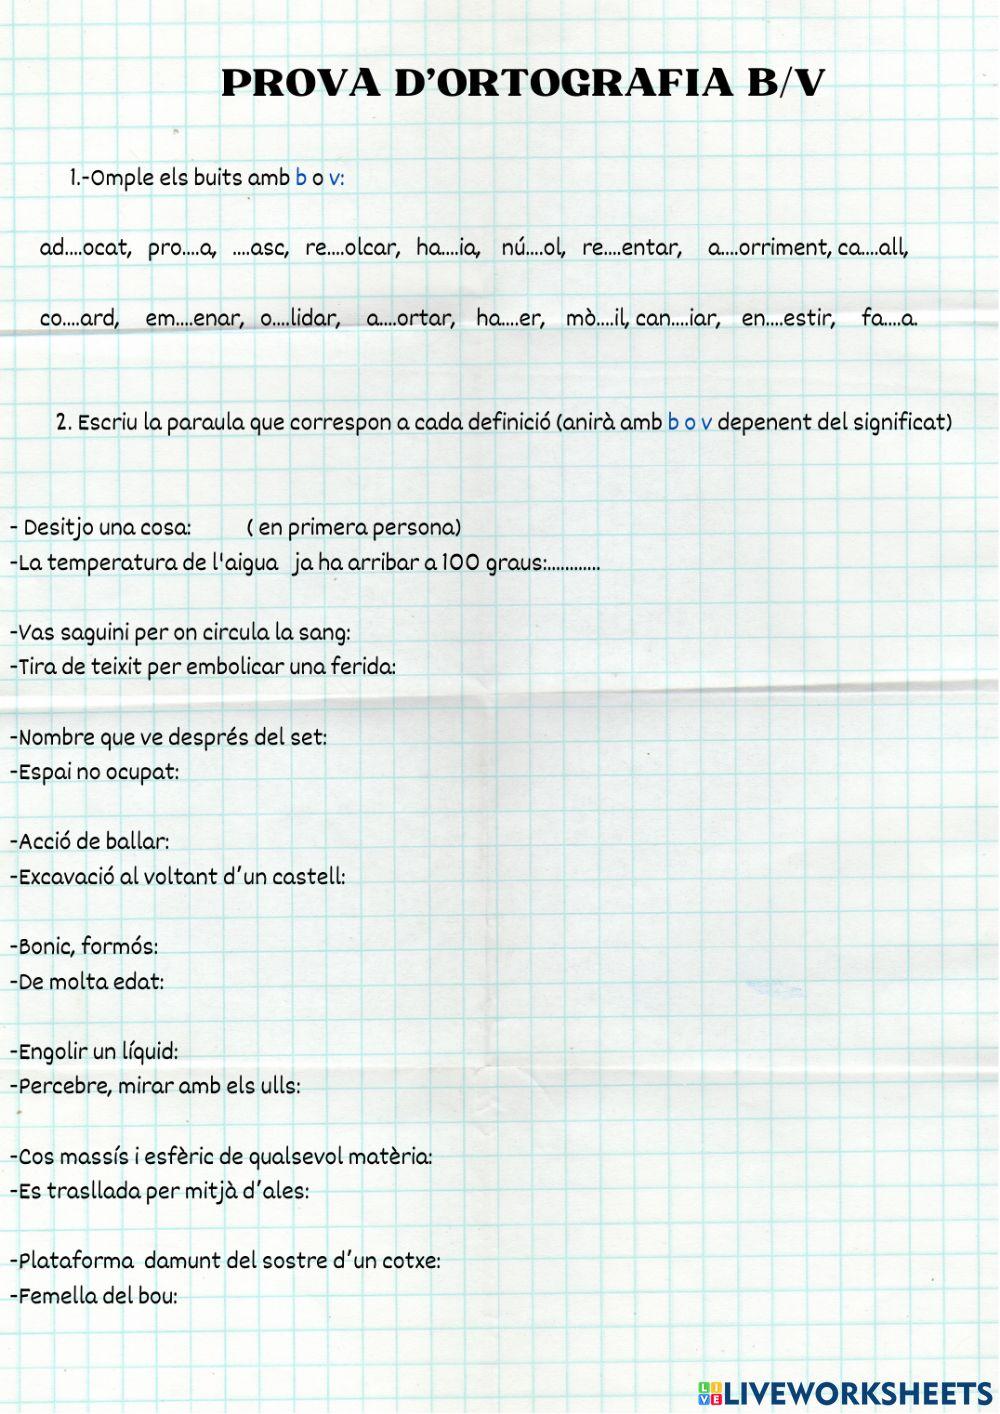 PROVA D'ORTOGRAFIA B/V
1.-Omple els buits amb b o v:
ad....ocat, pro....a, ....asc, re....olcar, ha....ia, nú....ol, re....entar, a....orriment, ca....all,
co....ard, em....enar, o....lidar, a....ortar, ha....er, mò....il, can....iar, en....estir, fa....a.
2. Escriu la paraula que correspon a cada definició (anirà amb b o v depenent del significat)
- Desitjo una cosa: ( en primera persona)
-La temperatura de l'aigua ja ha arribar a 100 graus:............
-Vas saguini per on circula la sang:
-Tira de teixit per embolicar una ferida:
-Nombre que ve després del set:
-Espai no ocupat:
-Acció de ballar:
-Excavació al voltant d'un castell:
-Bonic, formós:
-De molta edat:
-Engolir un líquid:
-Percebre, mirar amb els ulls:
-Cos massís i esfèric de qualsevol matèria:
-Es trasllada per mitjà d'ales:
-Plataforma damunt del sostre d'un cotxe:
-Femella del bou:
LIVEWORKSHEETS